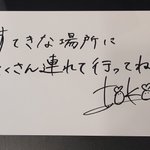 すてきな場所に
たくさん連れて行ってね